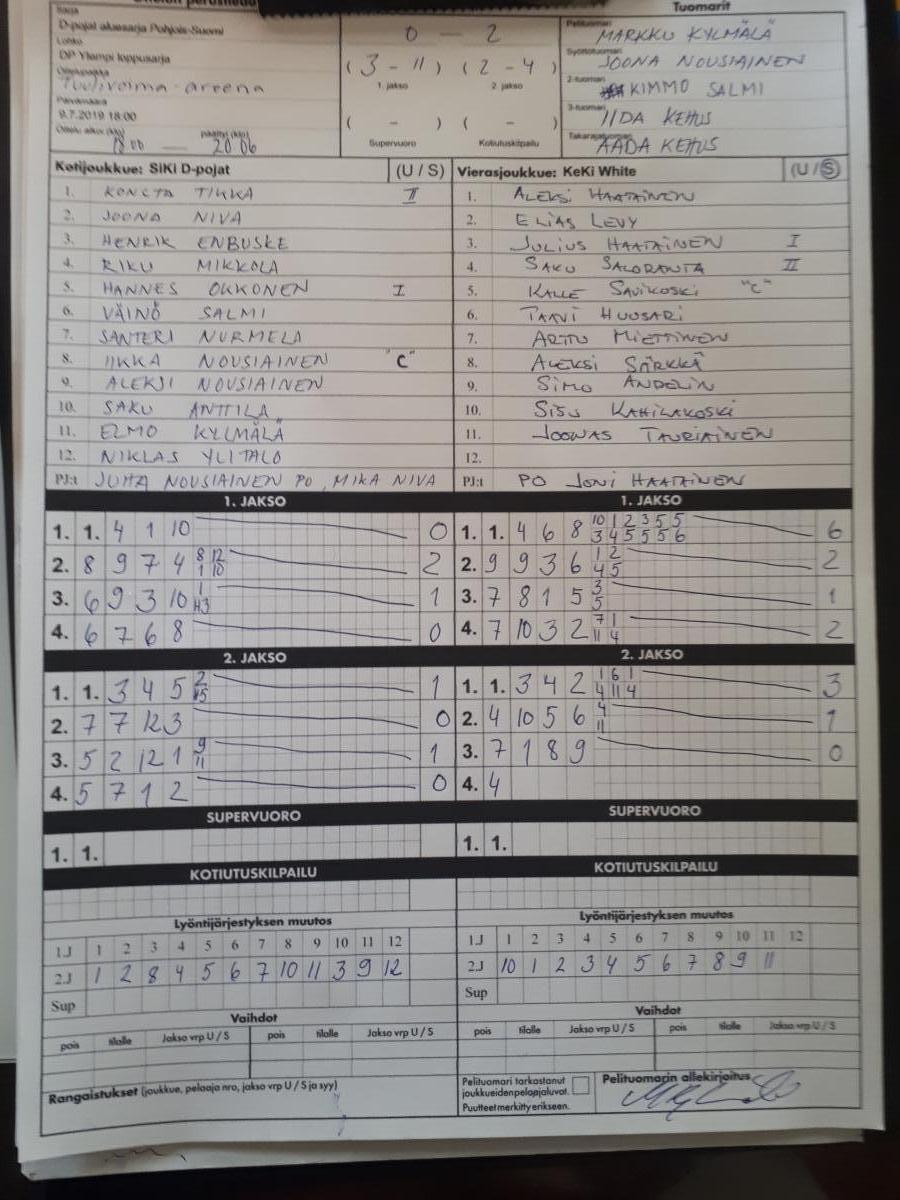 Ottelun perustiedot
Sarja
D-pojat aluesarja Pohjois-Suomi
Lohko
DP Ylempi loppusarja
Ottelupaikka
Tuulivoima-areena
Päivämäärä
9.7.2019 18:00
Ottelu alkoi (klo) 18:00 päättyi (klo) 20:06
0 — 2
(3 - 11) (2 - 4)
1. jakso 2. jakso
( - ) ( - )
Supervuoro Kotiutuskilpailu
Tuomarit
Pelituomari
MARKKU KYLMÄLÄ
Syöttötuomari
JOONA NOUSIAINEN
2-tuomari
KIMMO SALMI
3-tuomari
IIDA KEHUS
Takarajatuomari
AADA KEHUS
Kotijoukkue: SiKi D-pojat (U / S)
1. KONSTA TIKKA II
2. JOONA NIVA
3. HENRIK ENBUSKE
4. RIKU MIKKOLA
5. HANNES OKKONEN I
6. VÄINÖ SALMI
7. SANTERI NURMELA
8. IIKKA NOUSIAINEN "C"
9. ALEKSI NOUSIAINEN
10. SAKU ANTTILA
11. ELMO KYLMÄLÄ
12. NIKLAS YLITALO
PJ:t JUHA NOUSIAINEN PO, MIKA NIVA
Vierasjoukkue: KeKi White (U / S)
1. ALEKSI HAATAINEN
2. ELIAS LEVY
3. JULIUS HAATAINEN I
4. SAKU SALORANTA II
5. KALLE SAVIKOSKI "C"
6. TAAVI HUUSARI
7. ARTTU MIETTINEN
8. ALEKSI SÄRKKÄ
9. SIMO ANDELIN
10. SISU KAHILAKOSKI
11. JOONAS TAURIAINEN
12.
PJ:t PO JONI HAATAINEN
1. JAKSO
1. 1. 4 1 10 0
2. 8 9 7 4 8 12 2
1 10
3. 6 9 3 10 1 1
4. 6 7 6 8 0
1. JAKSO
1. 1. 4 6 8 10 1 2 3 5 5 6
3 4 5 5 5 6
2. 9 9 3 6 1 2 2
4 5
3. 7 8 1 5 3 1
5
4. 7 10 3 2 7 1 2
11 4
2. JAKSO
1. 1. 3 4 5 2 1
2. 7 7 12 3 0
3. 5 2 12 1 9 1
11
4. 5 7 1 2 0
2. JAKSO
1. 1. 3 4 2 1 6 1 3
4 11 4
2. 4 10 5 6 4 1
11
3. 7 1 8 9 0
4. 4
SUPERVUORO
1. 1.
SUPERVUORO
1. 1.
KOTIUTUSKILPAILU
KOTIUTUSKILPAILU
Lyöntijärjestyksen muutos
1.J 1 2 3 4 5 6 7 8 9 10 11 12
2.J 1 2 8 4 5 6 7 10 11 3 9 12
Sup
Lyöntijärjestyksen muutos
1.J 1 2 3 4 5 6 7 8 9 10 11 12
2.J 10 1 2 3 4 5 6 7 8 9 11
Sup
Vaihdot
pois tilalle Jakso vrp U / S pois tilalle Jakso vrp U / S
Vaihdot
pois tilalle Jakso vrp U / S pois tilalle Jakso vrp U / S
Rangaistukset (joukkue, pelaaja nro, jakso vrp U / S ja syy)
Pelituomari tarkastanut
joukkueiden pelaajaluvat.
Puutteet merkitty erikseen.
Pelituomarin allekirjoitus